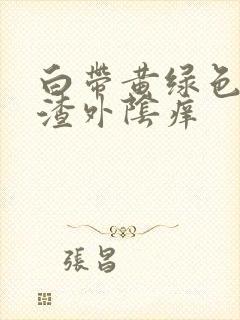 白带黄绿色
渣外陰痒
張昌